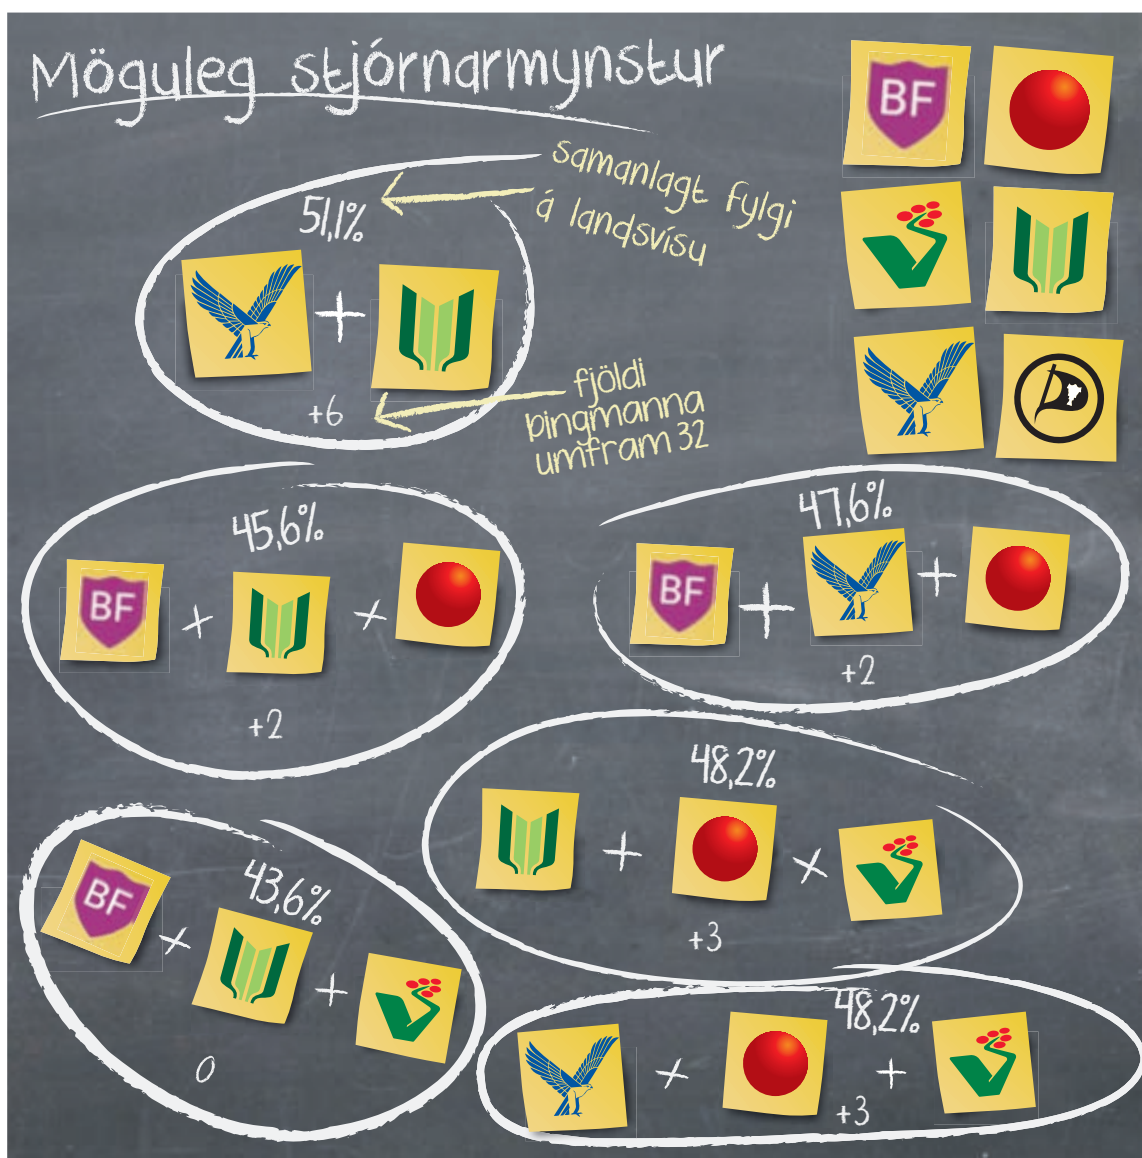 Möguleg stjórnarmynstur
BF
51,1%
samanlagt fylgi
á landsvísu
+
+6
fjöldi
þingmanna
umfram 32
45,6%
BF
+
+
+2
47,6%
BF
+
+
+2
48,2%
+
+
+3
43,6%
BF
+
+
0
48,2%
+
+
+3